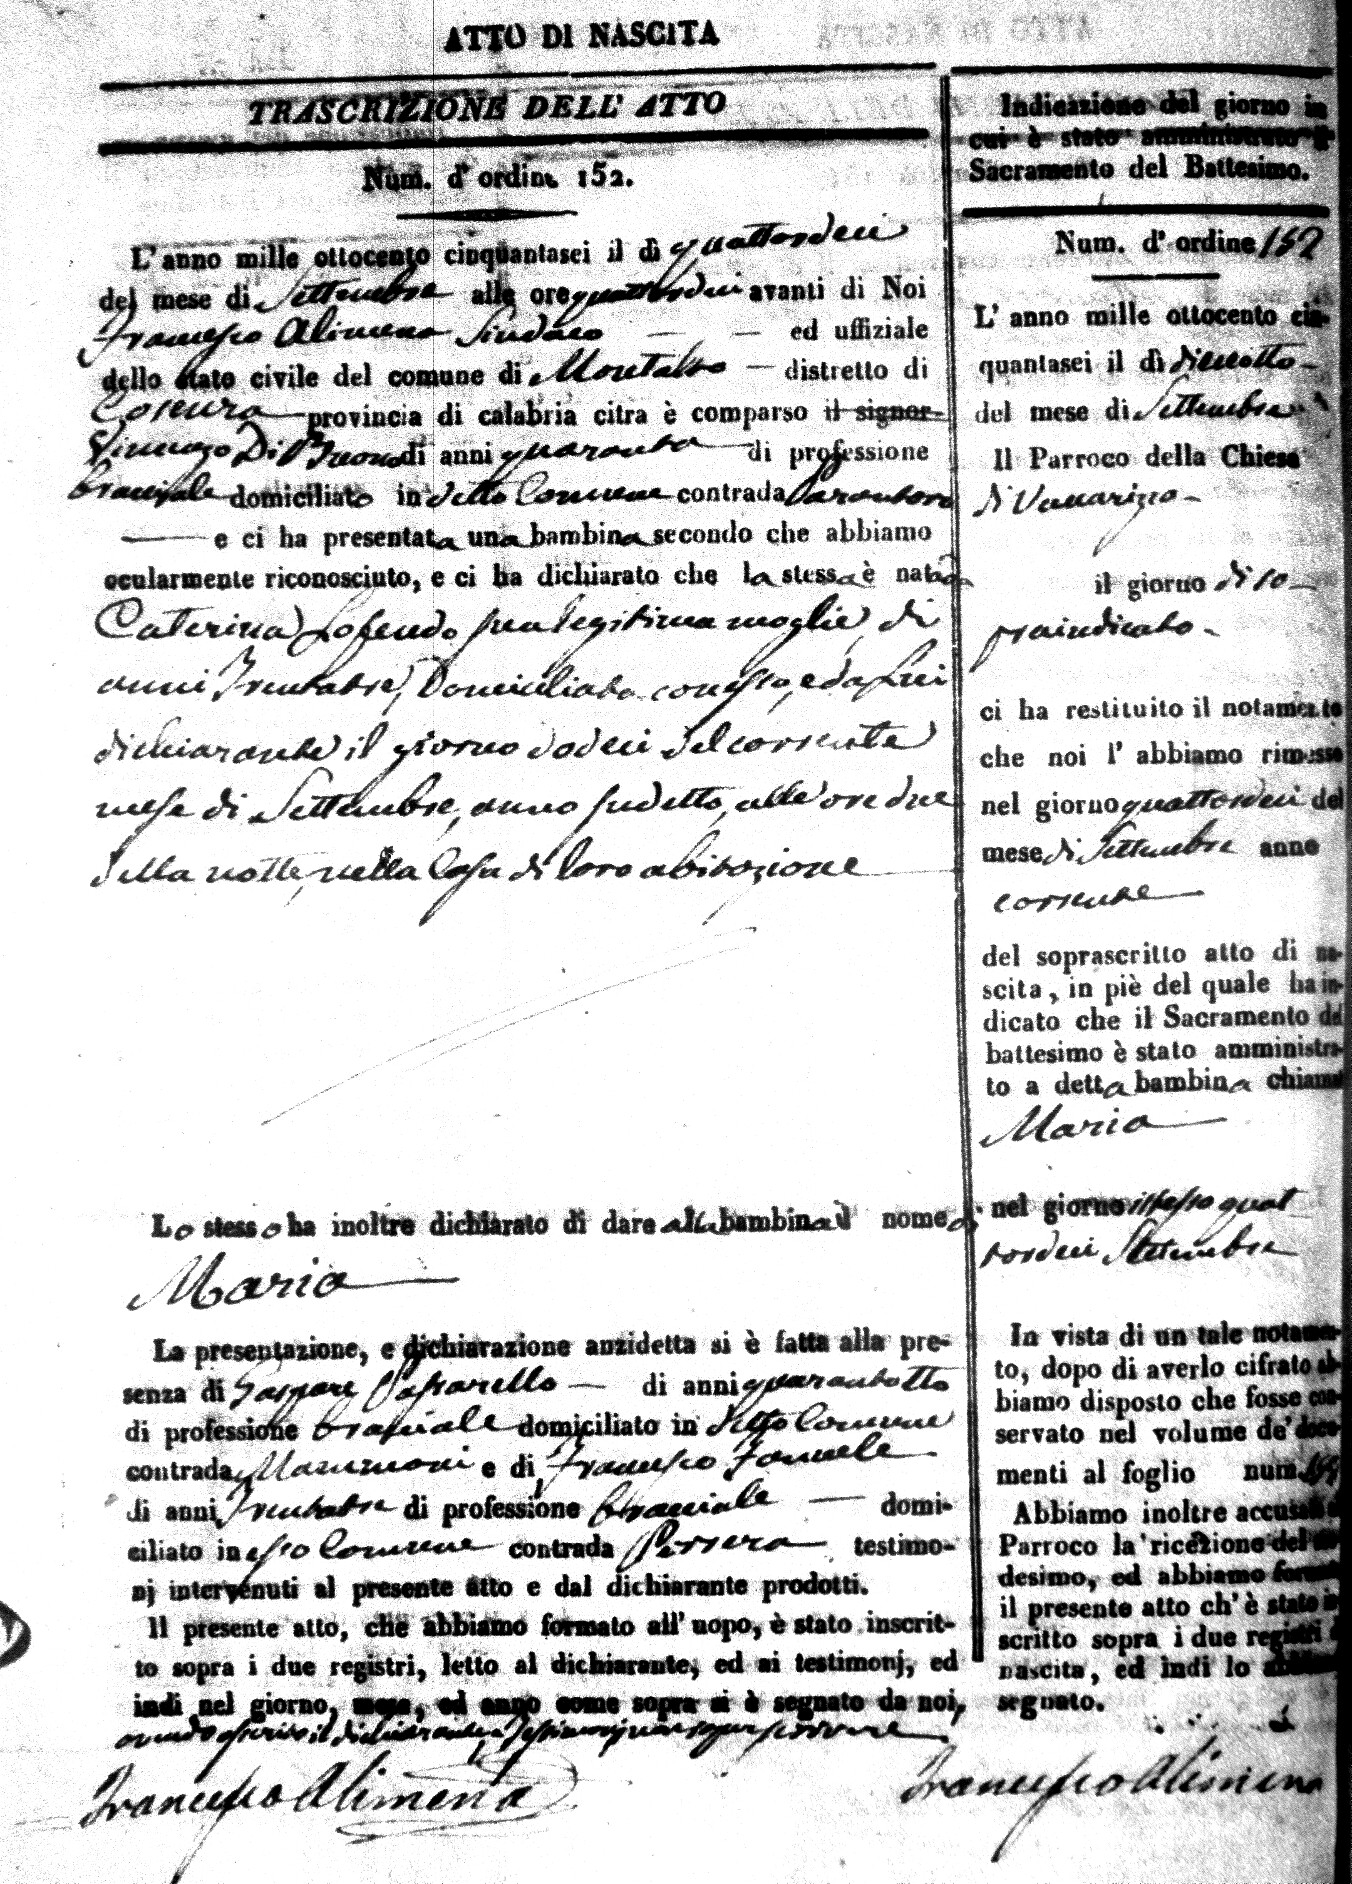 ATTO DI NASCITA
TRASCRIZIONE DELL' ATTO
Num. d' ordine 152.
L' anno mille ottocento cinquantasei il dì quattordeci
del mese di Settembre alle ore quattordeci avanti di Noi
Francesco Alimena Sindaco — — ed uffiziale
dello stato civile del comune di Montalto — distretto di
Cosenza provincia di calabria citra è comparso il signor
Vincenzo Di Buono di anni quaranta di professione
bracciale domiciliato in detto Comune contrada Parantoro
— e ci ha presentata una bambina secondo che abbiamo
ocularmente riconosciuto, e ci ha dichiarato che la stessa è nata da
Caterina sua legitima moglie, di
anni Trentatre, Domiciliata con esso, e da esso lui
dichiarante il giorno dodeci del corrente
mese di Settembre, anno sudetto, alle ore due
della notte, nella Casa di loro abitazione
Lo stesso ha inoltre dichiarato di dare alla bambina il nome di
Maria
La presentazione, e dichiarazione anzidetta si è fatta alla pre-
senza di Gaspare Passarello — di anni quarantotto
di professione bracciale domiciliato in detto Comune
contrada e di Francesco
di anni Trentatre di professione bracciale — domi-
ciliato in esso Comune contrada testimo-
nj intervenuti al presente atto e dal dichiarante prodotti.
Il presente atto, che abbiamo formato all' uopo, è stato inscrit-
to sopra i due registri, letto al dichiarante, ed ai testimonj, ed
indi nel giorno, mese, ed anno come sopra si è segnato da noi,
avendo asserito il dichiarante, e Testimonj non saper scrivere
Francesco Alimena
Indicazione del giorno in
cui è stato amministrato il
Sacramento del Battesimo.
Num. d' ordine 152
L' anno mille ottocento cin-
quantasei il dì dieciotto
del mese di Settembre
Il Parroco della Chiesa
di Vaccarizzo
il giorno di so-
praindicato
ci ha restituito il notamento
che noi l' abbiamo rimesso
nel giorno quattordeci del
mese di Settembre anno
corrente
del soprascritto atto di na-
scita, in piè del quale ha in-
dicato che il Sacramento del
battesimo è stato amministra-
to a detta bambina chiamat
Maria
nel giorno istesso quat
tordeci Settembre
In vista di un tale notamen-
to, dopo di averlo cifrato ab-
biamo disposto che fosse con-
servato nel volume de' docu-
menti al foglio num.
Abbiamo inoltre accusato al
Parroco la ricezione del me-
desimo, ed abbiamo formato
il presente atto ch' è stato in-
scritto sopra i due registri di
nascita, ed indi lo abbiamo
segnato.
Francesco Alimena